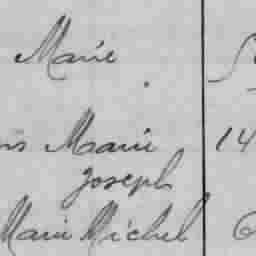 Marie
Marie 14
Joseph
Marie Michel 6